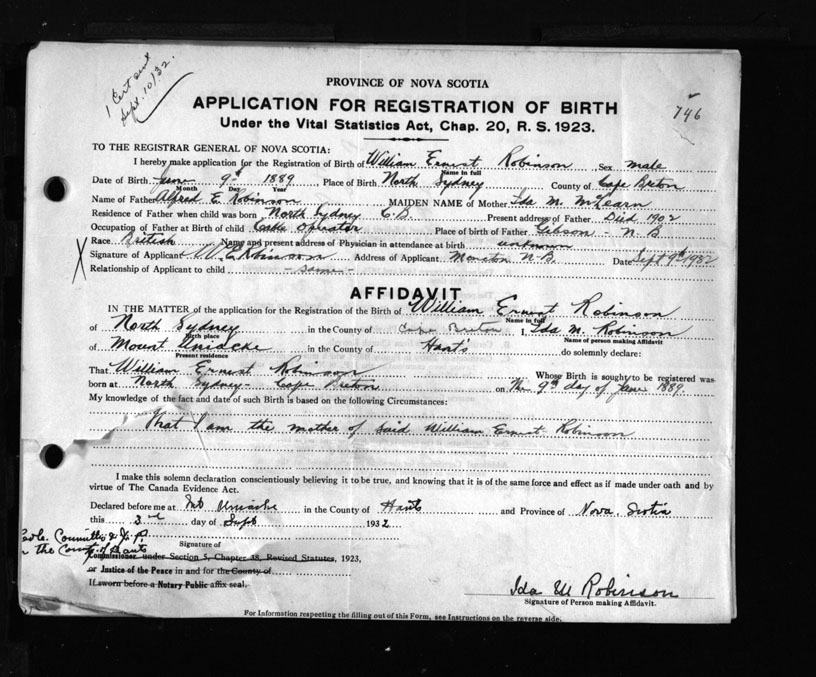 1 Cert sent
Sept. 10/32.
746
PROVINCE OF NOVA SCOTIA
APPLICATION FOR REGISTRATION OF BIRTH
Under the Vital Statistics Act, Chap. 20, R. S. 1923.
TO THE REGISTRAR GENERAL OF NOVA SCOTIA:
I hereby make application for the Registration of Birth of William Ernest Robinson Sex male
Name in full
Date of Birth June 9th 1889 Place of Birth North Sydney County of Cape Breton
Month Day Year
Name of Father Alfred E Robinson MAIDEN NAME of Mother Ida M. McLearn
Residence of Father when child was born North Sydney C.B. Present address of Father Died 1902
Occupation of Father at Birth of child Cable Operator Place of birth of Father Gibson - N.B
Race British Name and present address of Physician in attendance at birth unknown
X Signature of Applicant W E Robinson Address of Applicant Moncton N.B. Date Sept 9th 1932
Relationship of Applicant to child - same -
AFFIDAVIT
IN THE MATTER of the application for the Registration of the Birth of William Ernest Robinson
Name in full
of North Sydney in the County of Cape Breton I, Ida M. Robinson
Birth place Name of person making Affidavit
of Mount Uniacke in the County of Hants do solemnly declare:
Present residence
That William Ernest Robinson Whose Birth is sought to be registered was
born at North Sydney - Cape Breton on The 9th day of June 1889
My knowledge of the fact and date of such Birth is based on the following Circumstances:
That I am the mother of said William Ernest Robinson
I make this solemn declaration conscientiously believing it to be true, and knowing that it is of the same force and effect as if made under oath and by
virtue of The Canada Evidence Act.
Declared before me at Mt Uniacke in the County of Hants and Province of Nova Scotia
this 3rd day of Sept 1932
Signature of
& J.P
the County of Hants
Commissioner under Section 5, Chapter 38, Revised Statutes, 1923,
or Justice of the Peace in and for the County of
If sworn before a Notary Public affix seal.
Ida M Robinson
Signature of Person making Affidavit.
For Information respecting the filling out of this Form, see Instructions on the reverse side.